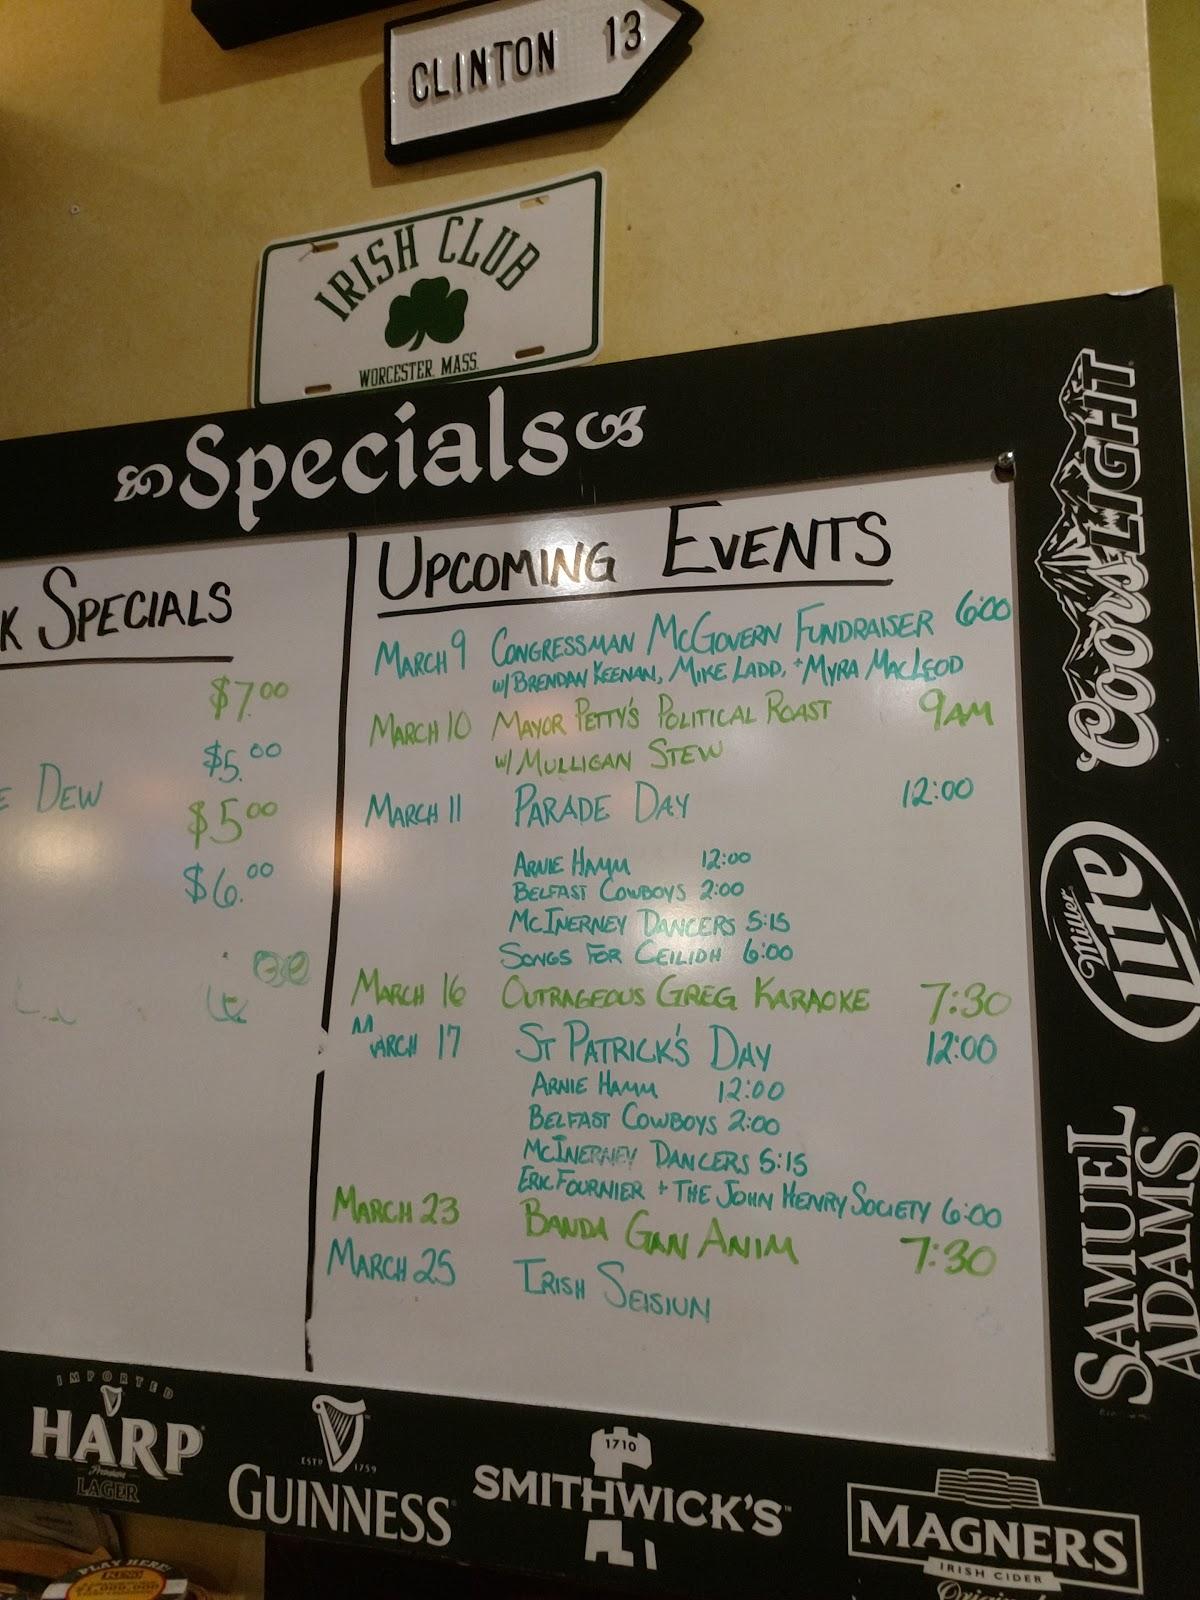 CLINTON 13
IRISH CLUB
WORCESTER, MASS.
Specials
K SPECIALS
$7.00
$5.00
E DEW
$5.00
$6.00
UPCOMING EVENTS
MARCH 9 CONGRESSMAN MCGOVERN FUNDRAISER 6:00
W/ BRENDAN KEENAN, MIKE LADD, + MYRA MACLEOD
MARCH 10 MAYOR PETTY'S POLITICAL ROAST 9AM
W/ MULLIGAN STEW
MARCH 11 PARADE DAY 12:00
ARNIE HAMM 12:00
BELFAST COWBOYS 2:00
MCINERNEY DANCERS 5:15
SONGS FOR CEILIDH 6:00
MARCH 16 OUTRAGEOUS GREG KARAOKE 7:30
MARCH 17 ST PATRICK'S DAY 12:00
ARNIE HAMM 12:00
BELFAST COWBOYS 2:00
MCINERNEY DANCERS 5:15
ERIC FOURNIER + THE JOHN HENRY SOCIETY 6:00
MARCH 23 BANDA GAN ANIM 7:30
MARCH 25 IRISH SEISIUN
Coors LIGHT
Miller
Lite
SAMUEL
ADAMS
IMPORTED
HARP
Premium
LAGER
ESTD 1759
GUINNESS
1710
SMITHWICK'S™
MAGNERS
IRISH CIDER
Original
PLAY HERE!
KENO